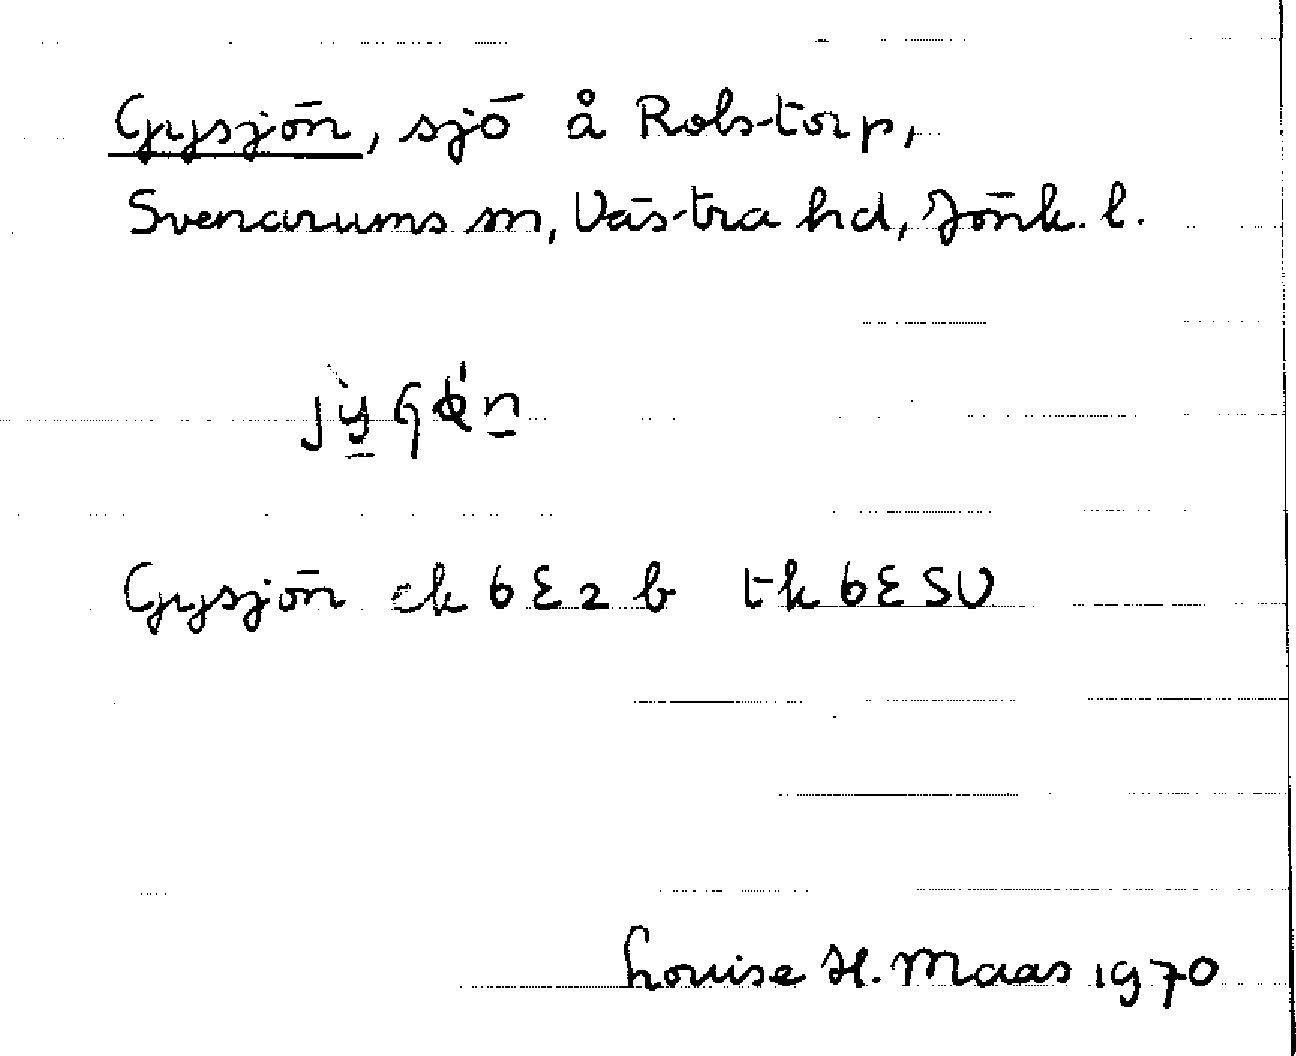 Gysjön, sjö å Rolstorp,
Svenarums sn, Västra hd, Jönk. l.
Gysjön ek 6E2b tk 6E SV
Louise H. Maas 1970